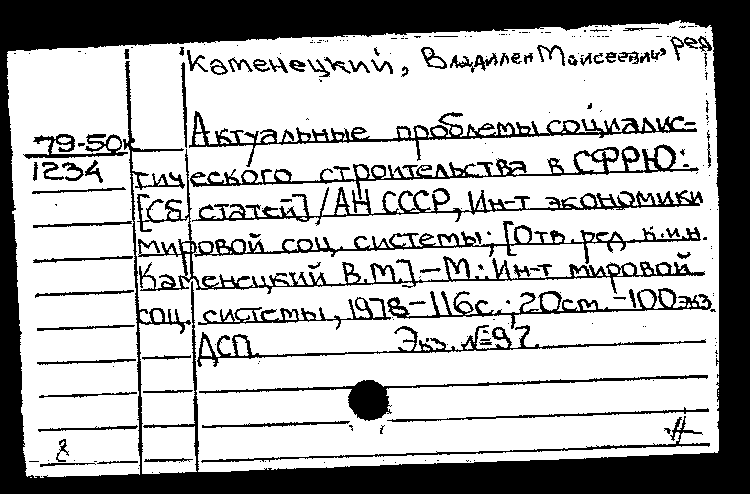 Каменецкий, Владилен Моисеевич, ред
79-50к
1234
Актуальные проблемы социалис-
тического строительства в СФРЮ:
[Сб. статей] / АН СССР, Ин-т экономики
мировой соц. системы; [Отв. ред. к.и.н.
Каменецкий В.М.].-М.: Ин-т мировой
соц. системы, 1978-116с.; 20см.-100экз.
ДСП. Экз. №97.